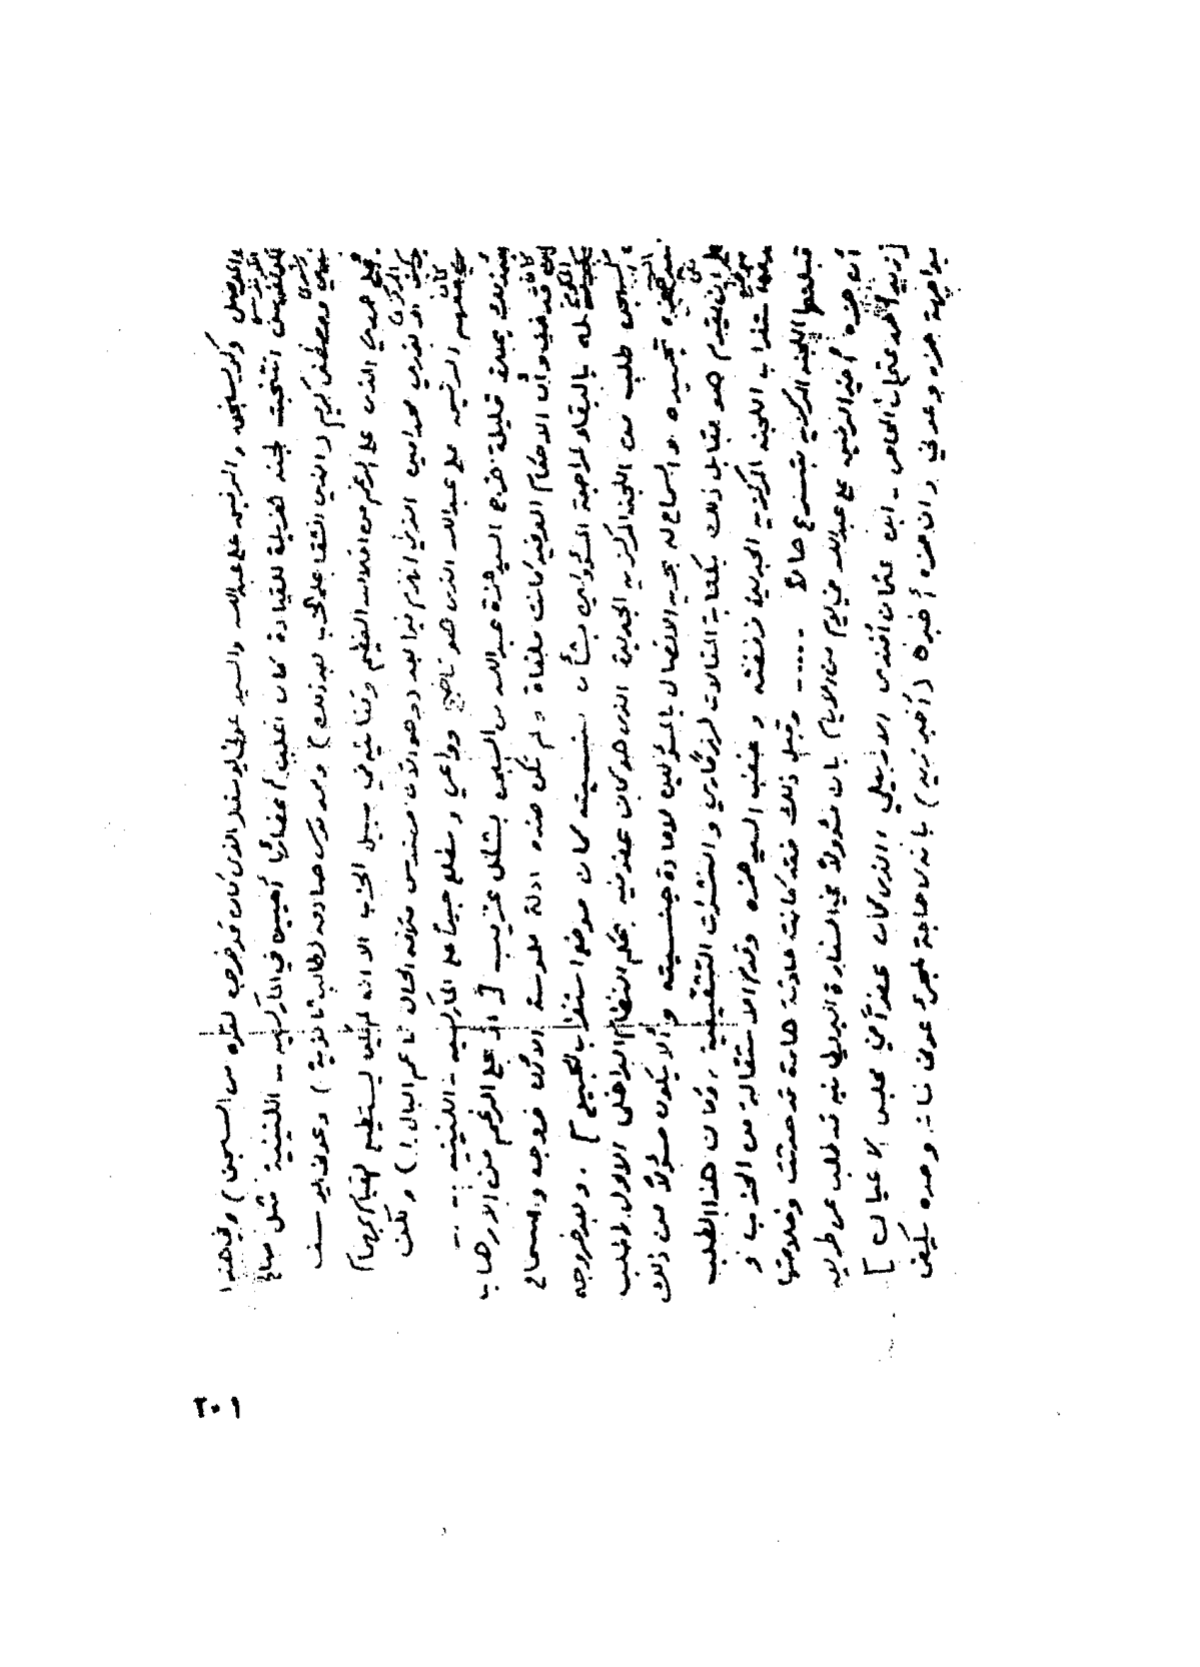 والموصل وكويسنجق والرئيس علي عبدالله والسيد عوني يوسف الذي كان قد خرج لتوه من السجن) وفي هذا
الكونفرنس انتخبت لجنة للقيادة كان اغلب أعضائها أميين في الماركسية -- اللينينية مثل صالح
ومصطفى كريم (الذين انشقا على الحزب بعد ذلك) ومحمد موسى صادق (طالب ثانوية) وعوني يوسف
حمدي الذي على الرغم من اخلاصه العظيم وتفانيه في سبيل الحزب الا انه لم يكن يستطيع القيام بمهام
المركزي نوري محمد امين الذي انهزم فيما بعد (وهو الآن مهندس مرفه الحال ناعم البال!) ولكن
كان الرئيس علي عبدالله الذي هو ناضج وواعي ومطلع جيداً على الماركسية - اللينينية ..
بمدة قليلة خرج السيد حمزة عبدالله من السجن بشكل غريب [إذ على الرغم من الارهاب
كانت الاحكام العرفية كانت ملغاة ولم تكن ضده ادلة ملموسة الا أن خروجه والسماح
له بالبقاء لمراجعة المسؤولين بشأن جنسيته كان موضوع استغراب الجميع] . وبعد خروجه
السجن طلب من اللجنة المركزية الجديدة الذي هو كان عضو فيه بحكم النظام الداخلي الاول طلب
تجميده والسماح له بحرية الاتصال بالمسؤولين لاعادة جنسيته وألا يكون مسؤولا من ذلك
على ان يقوم هو مقابل ذلك بكتابة المقالات لرزگاري والنشرات التثقيفية ، وكان هذا الطلب
موضع استغراب اللجنة المركزية الجديدة فرفضته وغضب السيد حمزه وقدم الاستقالة من الحزب و
قبلتها اللجنة المركزية بتسرع حالاً ..... وقبل ذلك فقد كانت حادثة هامة قد حدثت وخلاصتها
أن حمزه أخبر الرئيس علي عبدالله في يوم من الايام بان مسؤولا في السفارة البريطانية قد طلب عن طريق
[زيد أحمد عثمان المحامي - ابن عثمان أفندي الاربيلي (الذي كان عضواً في مجلس الاعيان]
مواجهة حمزه وعوني وان حمزه أخبره (أخبر زيد) بانه لا حاجة لمجيء عوني نا .. وحده يكفي
٢٠١